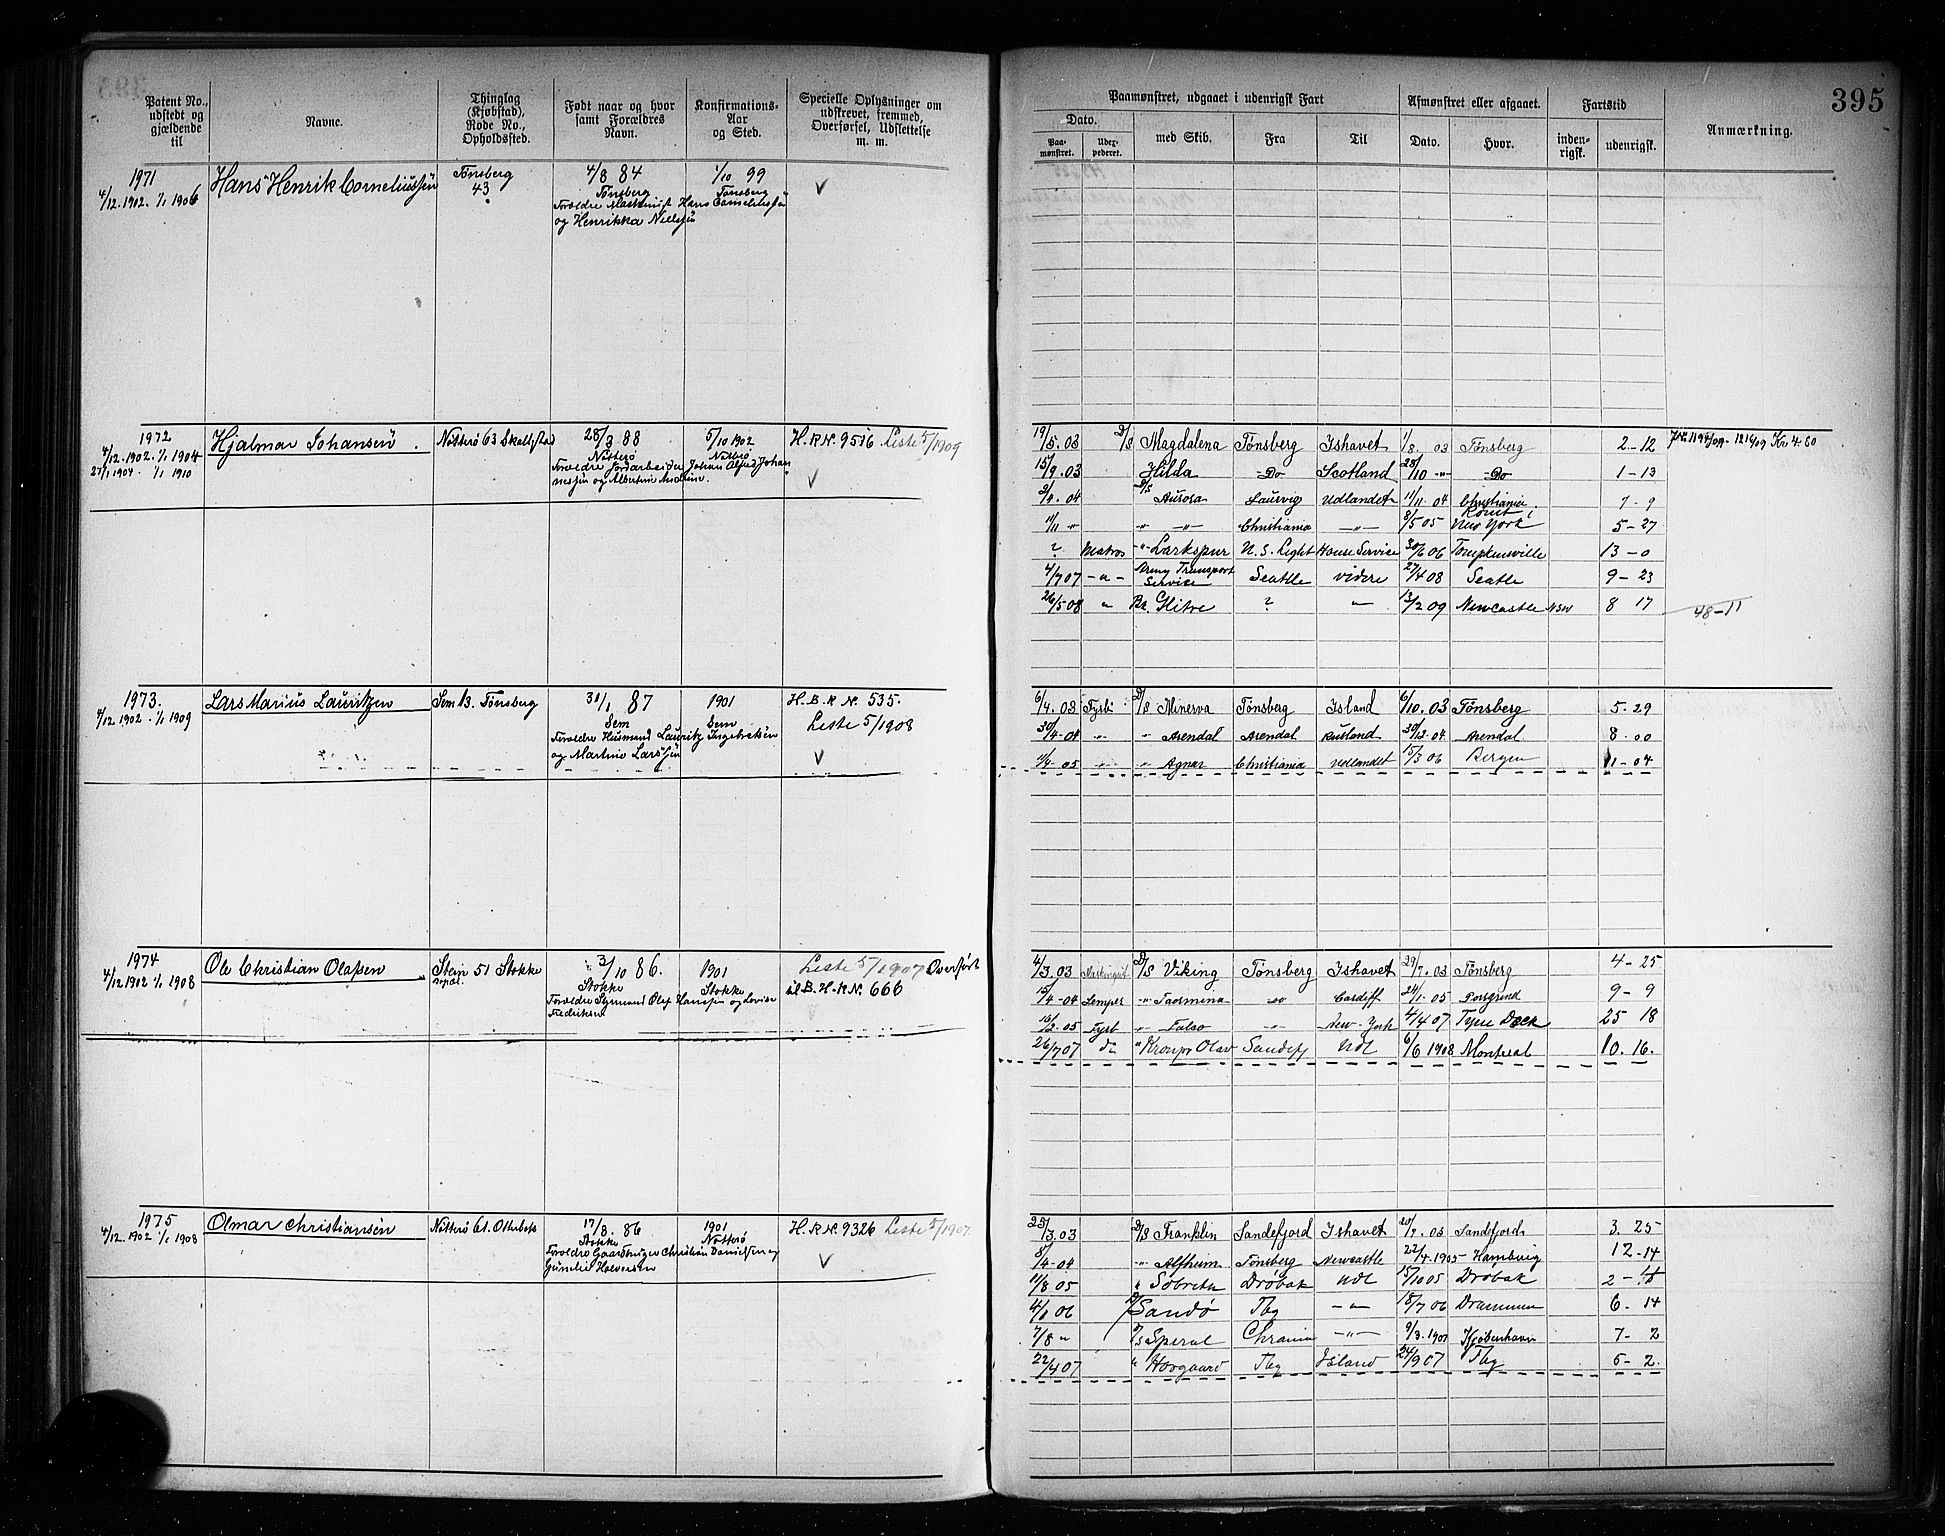 395
Patent No., udstedt og gjældende til
Navne.
Thinglag (Kjøbstad), Rode No., Opholdssted.
Født naar og hvor samt Forældres Navn.
Konfirmations- Aar og Sted.
Specielle Oplysninger om udskrevet, fremmed, Overførsel, Udslettelse m. m.
Paamønstret, udgaaet i udenrigsk Fart
Afmønstret eller afgaaet.
Fartstid
Anmærkning.
Dato.
Paa- mønstret.
med Skib.
Fra
Til
Dato.
Hvor.
inden- rigsk.
udenrigsk.
1971
4/12 1902. 1/1 1906
Hans Henrik Corneliussen
Tønsberg
43
4/8 84
Tønsberg
Forældre Maskinist Hans Corneliussen
og Henrikka Nielsen
1/10 99
Tønsberg
1972
4/12 1902. 1/1 1904
27/1 1904. 1/1 1910
Hjalmar Johansen
Nøtterø 63 Skallestad
28/3 88
Nøtterø
Forældre Jordarbeider Johan Alfred Johan
nesen og Albertine Andrine.
5/10 1902
Nøtterø
H.R.N. 9516 Liste 5/1909
19/5 03 D/S Magdalena Tønsberg Ishavet 1/8 03 Tønsberg 2-12
15/9 03 Hilda Do Scotland 28/10 " Do 1-13
2/9 04 D/S Aurora Laurvig Udlandet 11/11 04 Christiania 7-9
11/11 " " Christiania " 8/5 05 Rømt i New York 5-27
? Matros " Larkspur U.S. Light House Service 30/6 06 Tompkinsville 13-0
4/7 07 " Army Transport Service Seattle videre 27/4 08 Seatle 9-23
26/5 08 " Bk. Hitre ? " 13/2 09 Newcastle NSW 8 17
48-11
1973.
4/12 1902. 1/1 1909
Lars Marius Lauritzen
Sem 13. Tønsberg
31/1 87
Sem
Forældre Husmand Lauritz Ingebretsen
og Martine Larssen
1901
Sem
H.B.R.N. 535.
Liste 5/1908
6/4 03 Fyrb: D/S Minerva Tønsberg Island 6/10 03 Tønsberg 5-29
30/4-04 " " Arendal Arendal Rusland 30/12 04 Arendal 8-00
" " Agnar Christiania Udlandet 15/3 06 Bergen 11-04
1974
4/12 1902 1/1 1908
Ole Christian Olafsen
Stein 51 Stokke
3/10 86.
Stokke
Forældre Sømand Olaf Hanssen og Lovise
Fredriksen
1901
Stokke
Liste 5/1907 Overført
til B.H.R.N. 666
4/3 03 D/S Viking Tønsberg Ishavet 29/7 03 Tønsberg 4-25
15/4-04 Lemper " Taormina " Cardiff 24/1 05 Porsgrund 9-9
16/2 05 Fyrb " Falco " New-York 4/4 07 Tyne Dock 25 18
26/7 07 do " Kronpr Olav Sandefj Udl 6/6 1908 Montreal 10. 16.
1975
4/12. 1902 1/1 1908
Olmar Christiansen
Nøtterø 61. Oltebæk
17/8. 86
Stokke
Forældre Gaardbruger Christian Danielsen og
Gunilie Halversen
1901
Nøtterø
H.R.N. 9326 Liste 5/1907
23/3 03 D/S Franklin Sandefjord Ishavet 20/7 03 Sandefjord 3. 25
8/4-04 " Alfheim Tønsberg Newcastle 22/4 1905 Hambrig 12-14
11/8 05 " Drøbak Udl 15/10 05 Drøbak 2-
4/1 06 Sandø Tbg " 18/7 06 Drammen 6. 14
7/8 " D/S Speral Chrania " 9/3 1907 Kjøbenhavn 7-2
22/4 07 " Horgaard Tbg Island 24/9 07 Tbg 5-2.